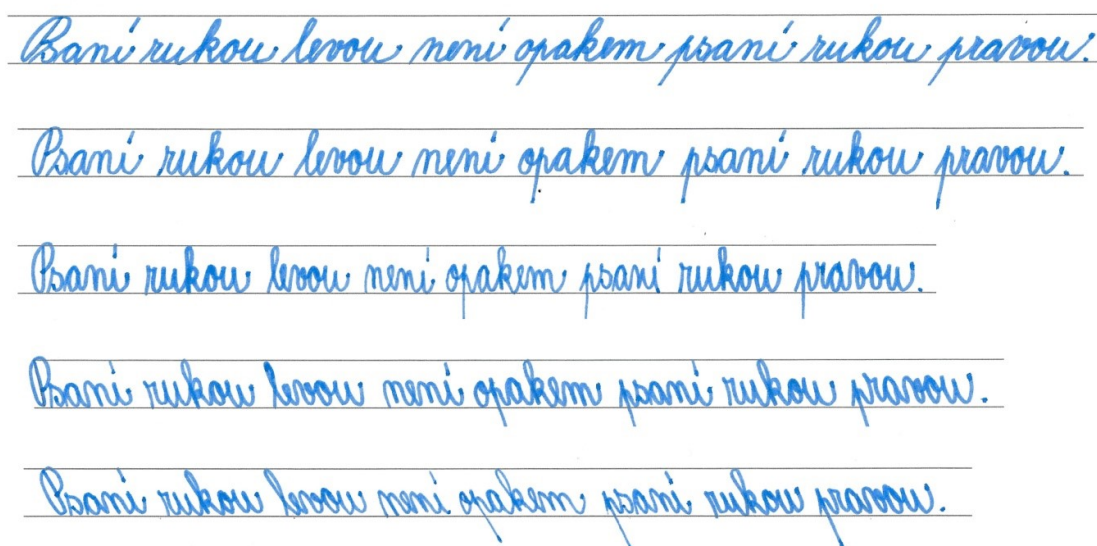 Psaní rukou levou není opakem psaní rukou pravou.
Psaní rukou levou není opakem psaní rukou pravou.
Psaní rukou levou není opakem psaní rukou pravou.
Psaní rukou levou není opakem psaní rukou pravou.
Psaní rukou levou není opakem psaní rukou pravou.